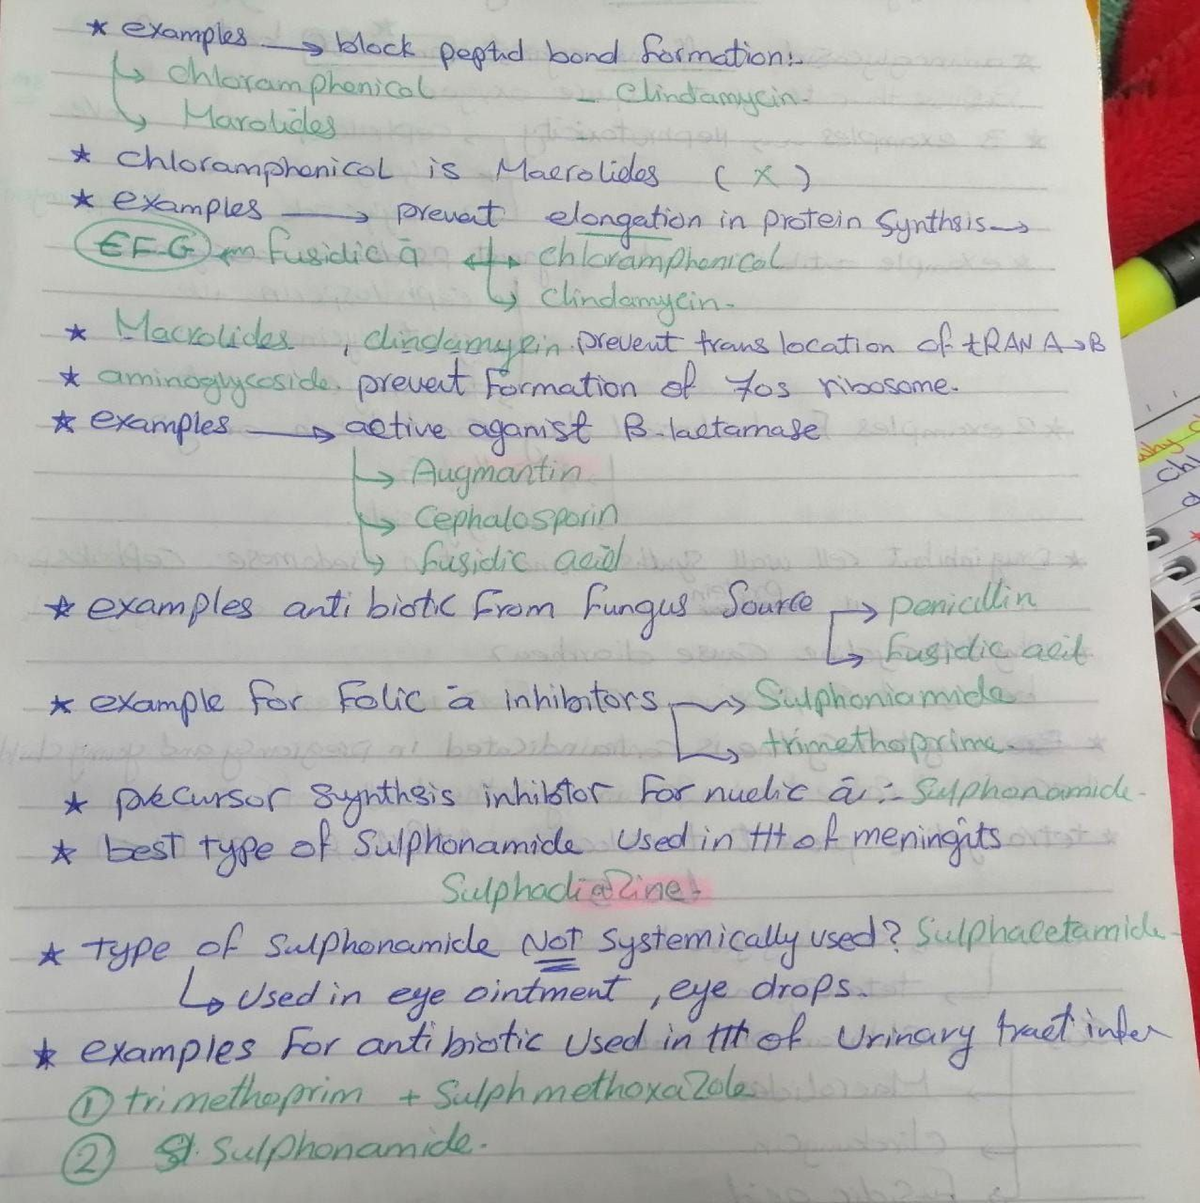 * examples → block peptid bond formation:-
↳ chloramphenicol - Clindamycin.
↳ Marolides
* chloramphenicol is Macrolides (x)
* examples → prevent elongation in protein Synthsis →
EF.G ← Fusidic ā ↔ chloramphenicol
↳ clindamycin.
* Macrolides, clindamycin prevent trans location of tRAN A→B
* aminoglycoside. prevent Formation of 70s ribosome.
* examples → active aganist B-lactamase
↳ Augmantin
↳ Cephalosporin
↳ fusidic acid
* examples anti biotic From Fungus Source → penicillin
↳ Fusidic acit
* example For Folic ā inhibitors → Sulphoniamide
↳ trimethoprime.
* precursor Synthsis inhibitor For nuclic ā :- Sulphonamide.
* best type of Sulphonamide Used in ttt of meningits
Sulphadiazine!
* type of Sulphonamide NOT Systemically used? Sulphacetamide
↳ Used in eye ointment, eye drops.
* examples For antibiotic Used in ttt of Urinary tract infec
① trimethoprim + Sulphmethoxazole
② Sulphonamide.